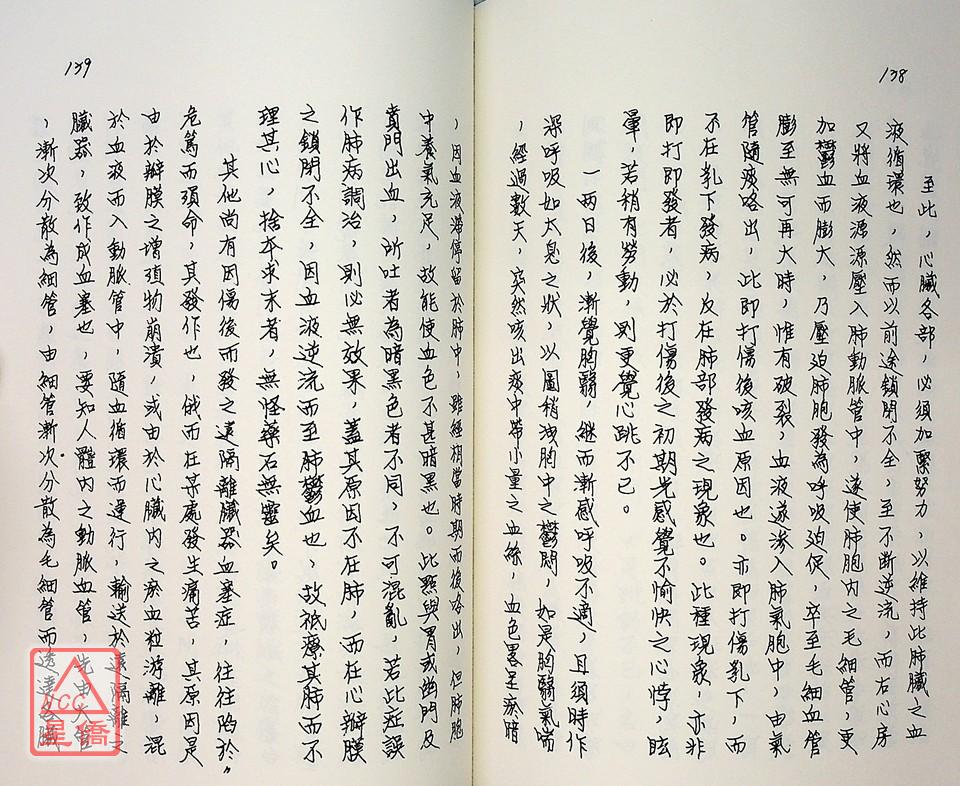 138
至此，心臟各部，必須加緊努力，以維持此肺臟之血
液循環也，然而以前途鎖閉不全，至不斷逆流，而右心房
又將血液源源壓入肺動脈管中，遂使肺胞內之毛細管，更
加鬱血而膨大，乃壓迫肺胞發為呼吸迫促，卒至毛細血管
膨至無可再大時，惟有破裂，血液遂滲入肺氣胞中，由氣
管隨痰咯出，此即打傷後咳血原因也。亦即打傷乳下，而
不在乳下發病，反在肺部發病之現象也。此種現象，亦非
即打即發者，必於打傷後之初期先感覺不愉快之心悸，眩
暈，若稍有勞動，則更覺心跳不已。
一兩日後，漸覺胸翳，繼而漸感呼吸不適，且須時作
深呼吸如太息之狀，以圖稍洩胸中之鬱悶，如是胸翳氣喘
，經過數天，突然咳出痰中帶小量之血絲，血色畧呈瘀暗
139
，因血液滯停留於肺中，雖經相當時期而後咯出，但肺胞
中養氣充足，故能使血色不甚暗黑也。此點與胃或幽門及
賁門出血，所吐者為暗黑色者不同，不可混亂，若此症誤
作肺病調治，則必無效果，蓋其原因不在肺，而在心瓣膜
之鎖閉不全，因血液逆流而至肺鬱血也，故祇療其肺而不
理其心，捨本求末者，無怪藥石無靈矣。
其他尚有因傷後而發之遠隔離臟器血塞症，往往陷於
危篤而頭命，其發作也，俄而在某處發生痛苦，其原因是
由於瓣膜之增殖物崩潰，或由於心臟內之瘀血粒游離，混
於血液而入動脈管中，隨血循環而達行，輸送於遠隔離之
臟器，致作成血塞也，要知人體內之動脈血管，先由大管
，漸次分散為細管，由細管漸次分散為毛細管而透達各臟
CC
星僑